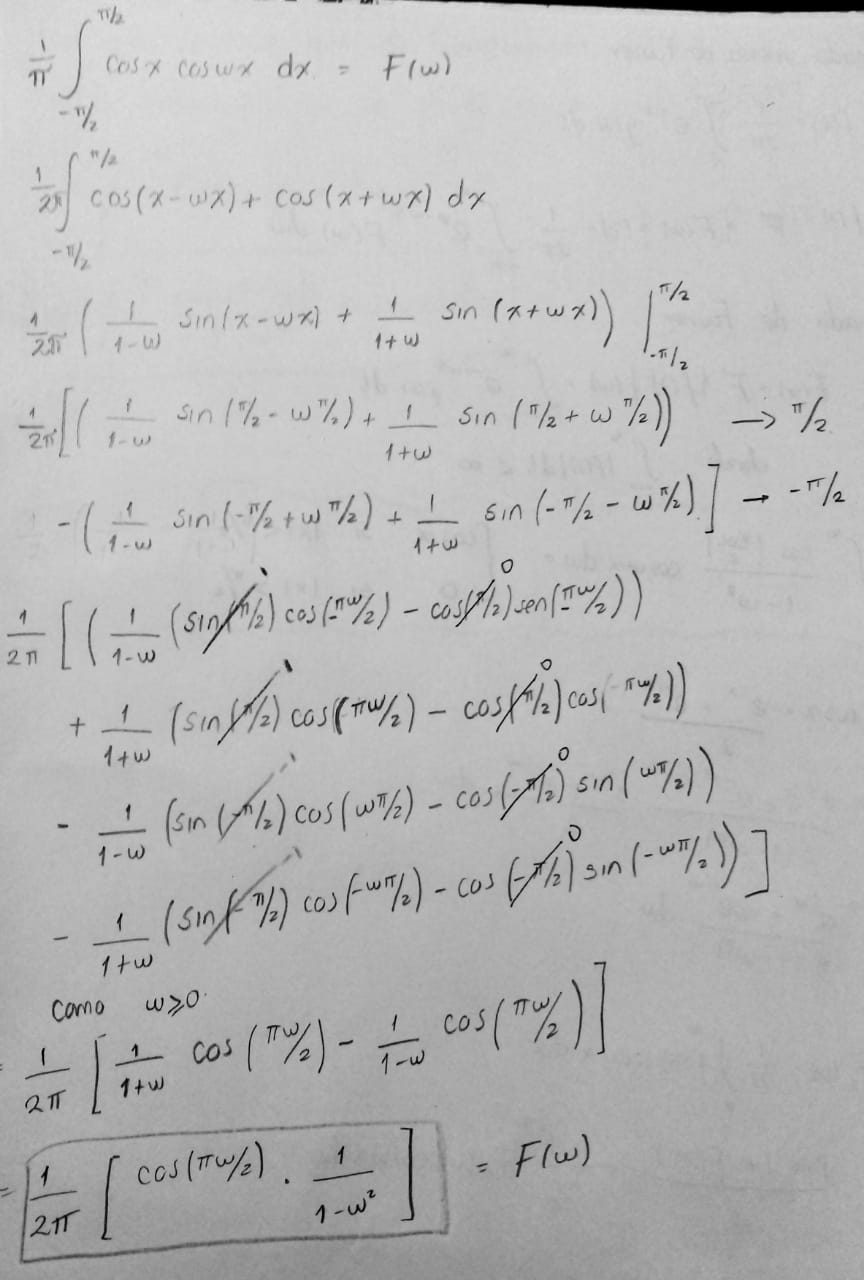 1/π ∫_{-π/2}^{π/2} cos x cos wx dx = F(w)
1/2π ∫_{-π/2}^{π/2} cos(x-wx) + cos(x+wx) dx
1/2π ( 1/1-w sin(x-wx) + 1/1+w sin(x+wx)) |_{-π/2}^{π/2}
1/2π [( 1/1-w sin(π/2 - wπ/2) + 1/1+w sin(π/2 + wπ/2)) → π/2
-( 1/1-w sin(-π/2 + wπ/2) + 1/1+w sin(-π/2 - wπ/2) ] → -π/2
1/2π [( 1/1-w (sin(π/2) cos(-πw/2) - cos(π/2) sen(-πw/2)) 0
+ 1/1+w (sin(π/2) cos(πw/2) - cos(π/2) cos(-πw/2)) 0
- 1/1-w (sin(-π/2) cos(wπ/2) - cos(-π/2) sin(wπ/2)) 0
- 1/1+w (sin(-π/2) cos(-wπ/2) - cos(-π/2) sin(-wπ/2)) ] 0
Como w≥0
= 1/2π [ 1/1+w cos(πw/2) - 1/1-w cos(πw/2) ]
= 1/2π [ cos(πw/2) · 1/1-w² ] = F(w)